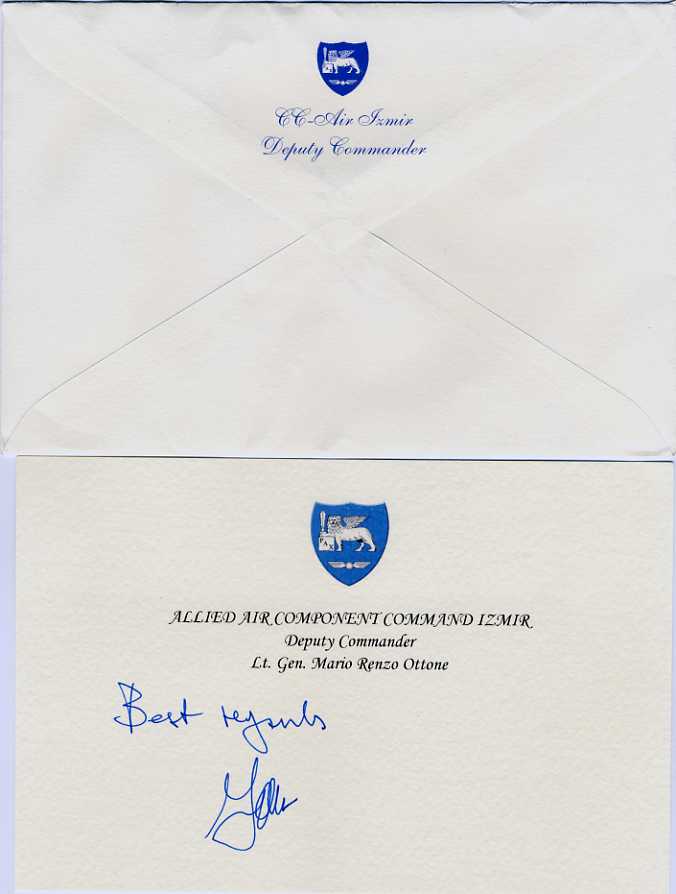 CC-Air Izmir
Deputy Commander
PAX
ALLIED AIR COMPONENT COMMAND IZMIR
Deputy Commander
Lt. Gen. Mario Renzo Ottone
Best regards